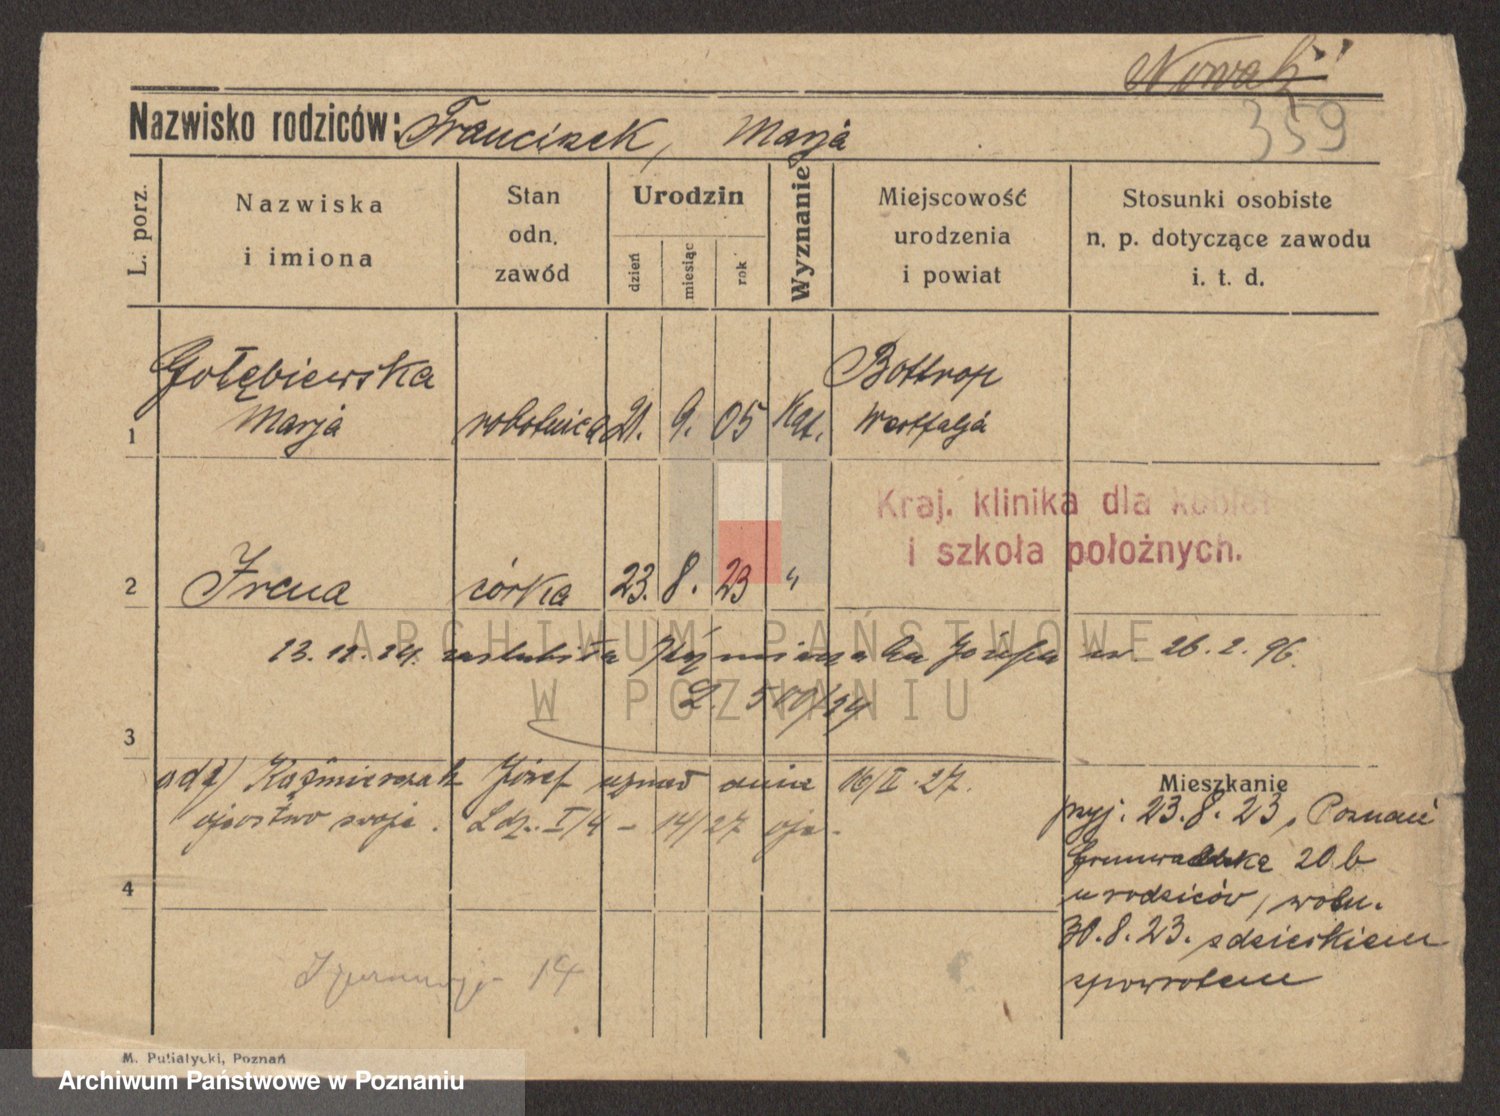 Nowak
359
Nazwisko rodziców: Franciszek, Marja
L. porz.
Nazwiska i imiona
Stan odn. zawód
Urodzin
dzień
miesiąc
rok
Wyznanie
Miejscowość urodzenia i powiat
Stosunki osobiste n. p. dotyczące zawodu i. t. d.
Gołębiewska Bottrop
1 Marja robotnica 21. 9. 05 Kat. Westfalja
Kraj. klinika dla kobiet
i szkoła położnych.
2 Irena córka 23. 8. 23 "
ARCHIWUM PAŃSTWOWE
W POZNANIU
zaślubiła Kaźmierczaka Józefa ur. 26. 2. 96.
L. 500/24
3
Kaźmierczak Józef uznał dnia 16/II. 27.
ojcostwo swoje. Ldz. I/4 - 14/27
4
Mieszkanie
przyj. 23. 8. 23, Poznań
Grunwaldzka 20 b
u rodziców,
30. 8. 23. z dzieckiem
zpowrotem
14
M. Putiatycki, Poznań
Archiwum Państwowe w Poznaniu